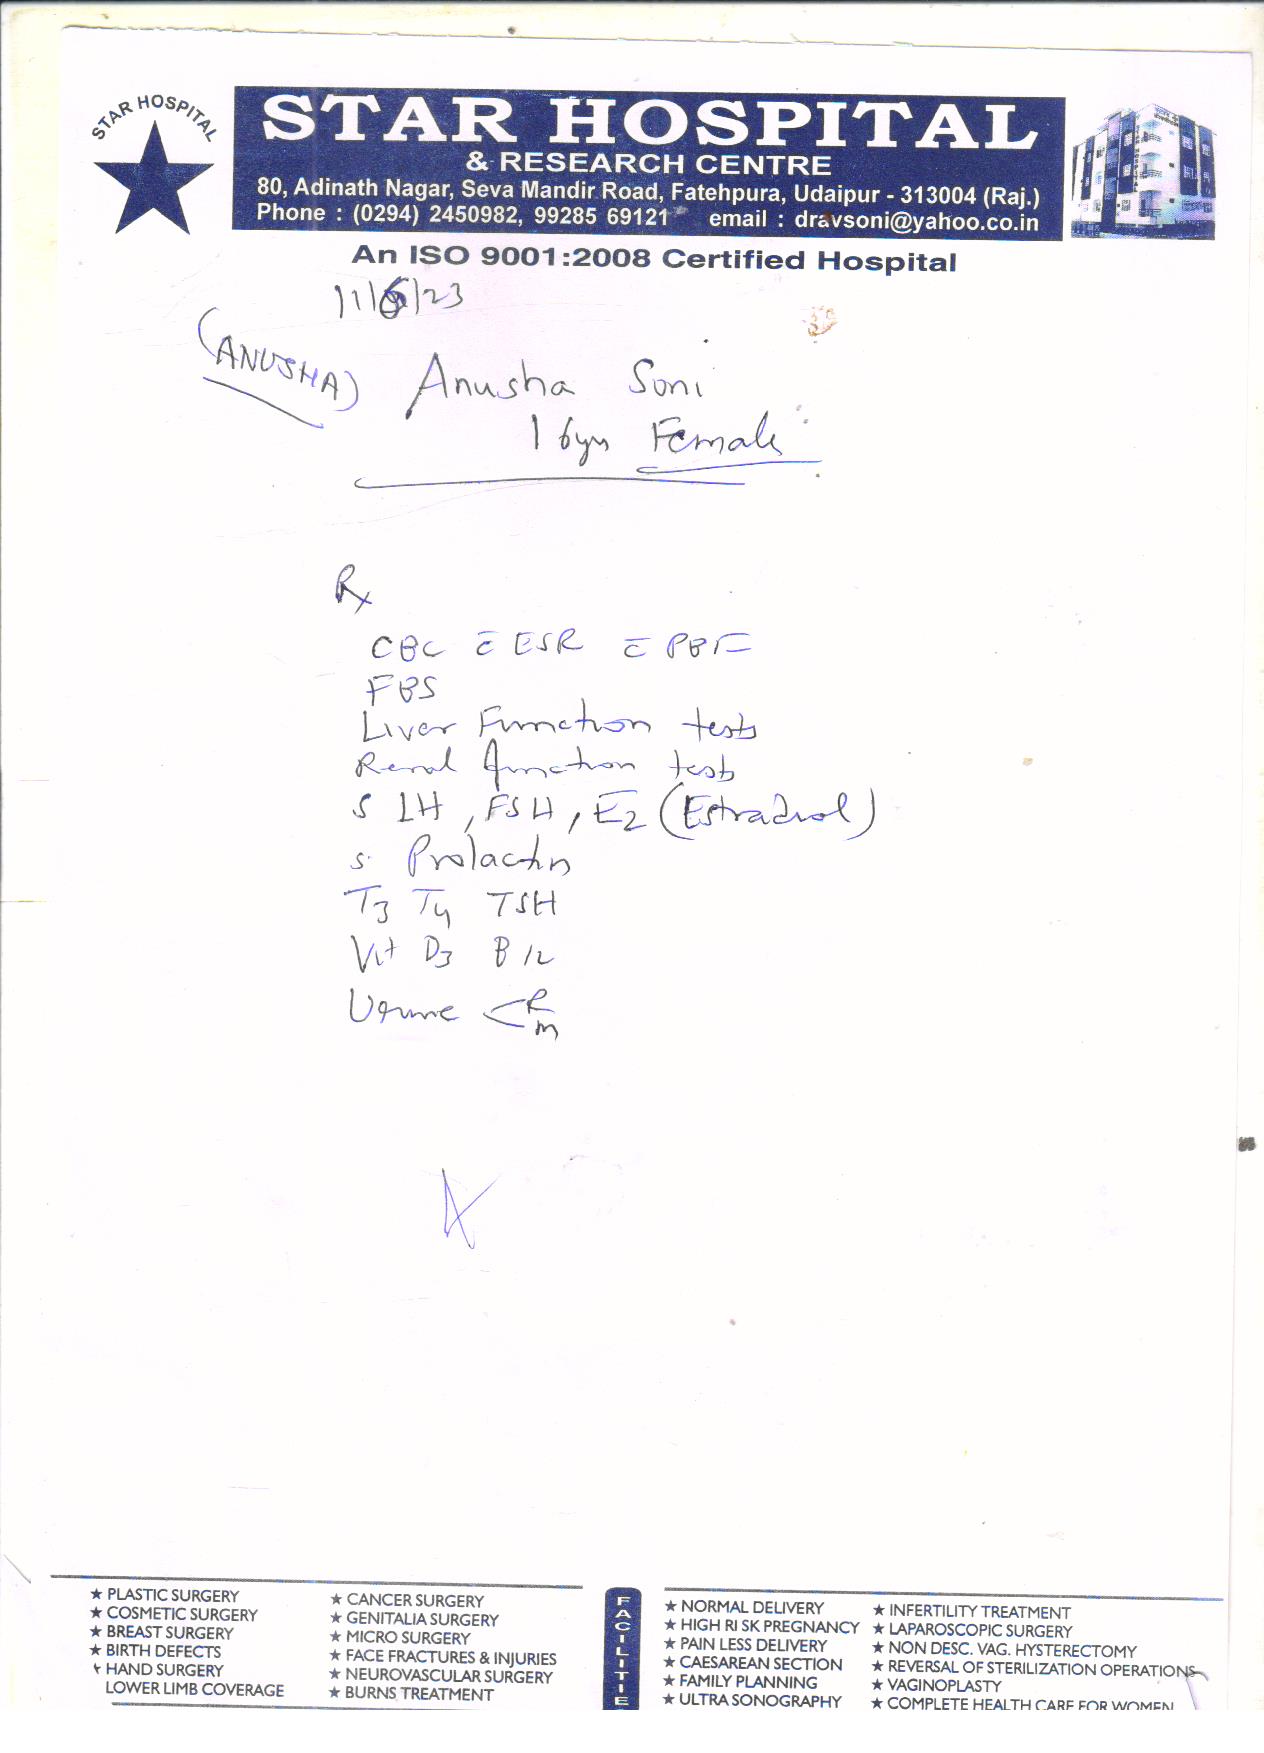 STAR HOSPITAL
STAR HOSPITAL
& RESEARCH CENTRE
80, Adinath Nagar, Seva Mandir Road, Fatehpura, Udaipur - 313004 (Raj.)
Phone : (0294) 2450982, 99285 69121 email : dravsoni@yahoo.co.in
An ISO 9001:2008 Certified Hospital
11/6/23
(ANUSHA) Anusha Soni
16yrs Female
Rx
CBC c̄ ESR c̄ PBF
FBS
Liver Function tests
Renal function tests
S LH, FSH, E2 (Estradiol)
S. Prolactin
T3 T4 TSH
Vit D3 B12
Urine < R
M
★ PLASTIC SURGERY
★ COSMETIC SURGERY
★ BREAST SURGERY
★ BIRTH DEFECTS
★ HAND SURGERY
LOWER LIMB COVERAGE
★ CANCER SURGERY
★ GENITALIA SURGERY
★ MICRO SURGERY
★ FACE FRACTURES & INJURIES
★ NEUROVASCULAR SURGERY
★ BURNS TREATMENT
FACILITIE
★ NORMAL DELIVERY
★ HIGH RISK PREGNANCY
★ PAIN LESS DELIVERY
★ CAESAREAN SECTION
★ FAMILY PLANNING
★ ULTRA SONOGRAPHY
★ INFERTILITY TREATMENT
★ LAPAROSCOPIC SURGERY
★ NON DESC. VAG. HYSTERECTOMY
★ REVERSAL OF STERILIZATION OPERATIONS
★ VAGINOPLASTY
★ COMPLETE HEALTH CARE FOR WOMEN